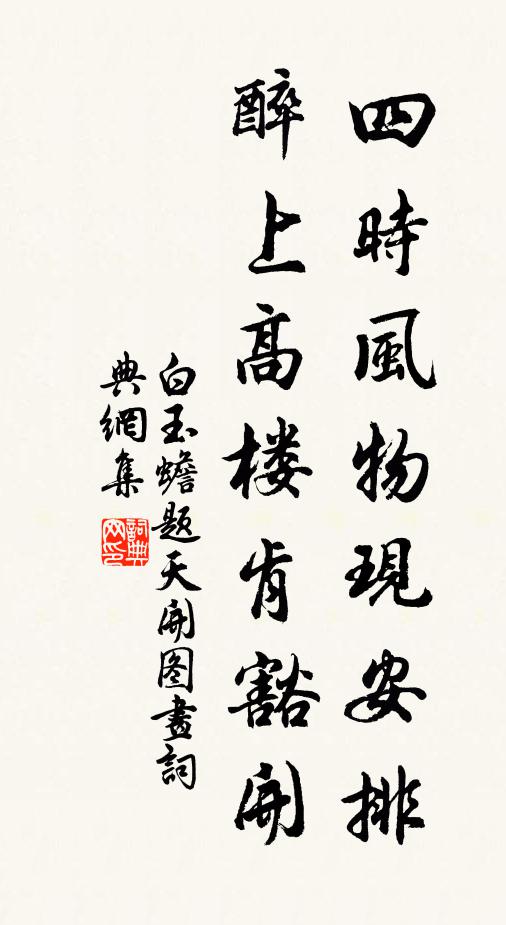 四時風物現安排
醉上高楼肯豁開
白玉蟾题天開图畫詞
典網集
詞典网印